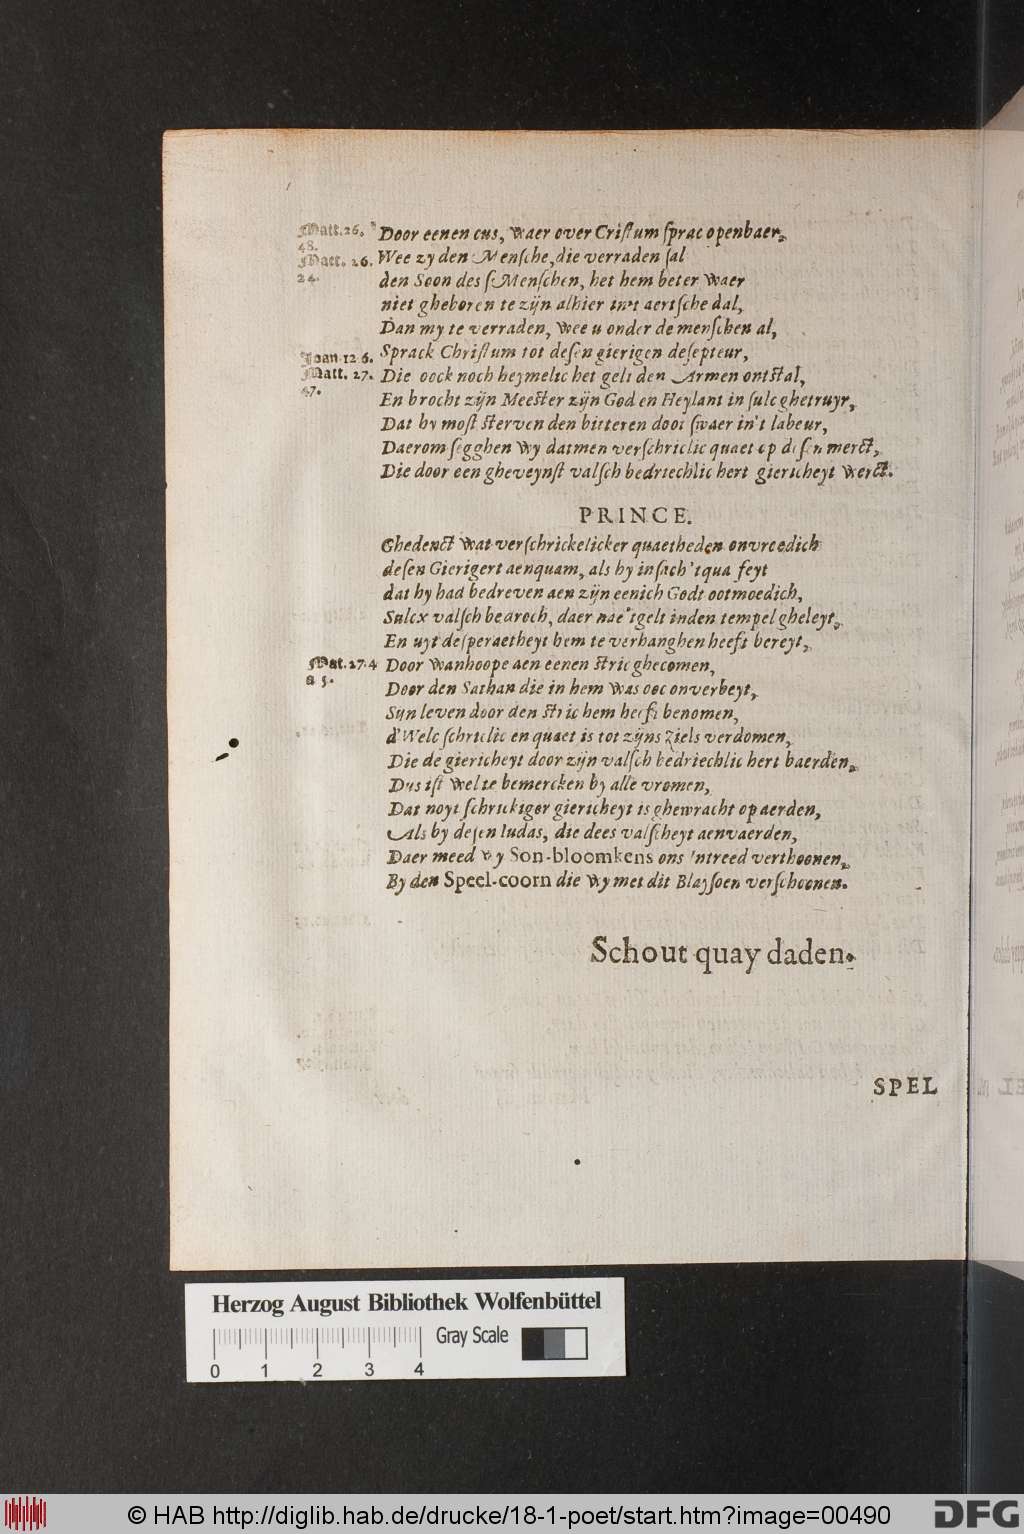 Matt. 26.
48.
Door eenen cus, waer over Cristum sprac openbaer,
Matt. 26.
24.
Wee zy den Mensche, die verraden sal
den Soon des sMenschen, het hem beter waer
niet gheboren te zijn alhier int aertsche dal,
Dan my te verraden, wee u onder de menschen al,
Joan. 12 6.
Sprack Christum tot desen gierigen desepteur,
Matt. 27.
47.
Die oock noch heymelic het gelt den Armen ontstal,
En brocht zijn Meester zijn God en Heylant in sulc ghetruyr,
Dat hy most sterven den bitteren doot swaer in't labeur,
Daerom segghen wy datmen verschriclic quaet op desen merct,
Die door een gheveynst valsch bedriechlic hert giericheyt werct.
PRINCE.
Ghedenct wat verschrickelicker quaetheden onvreedich
desen Gierigert aenquam, als hy insach 'tqua feyt
dat hy had bedreven aen zijn eenich Godt ootmoedich,
Sulcx valsch bedroch, daer nae 'tgelt inden tempel gheleyt,
En uyt desperaetheyt hem te verhanghen heeft bereyt,
Mat. 27.4
a 5.
Door wanhoope aen eenen stric ghecomen,
Door den Sathan die in hem was ooc onverbeyt,
Sijn leven door den stric hem heeft benomen,
d'Welc schriclic en quaet is tot zijns Ziels verdomen,
Die de giericheyt door zijn valsch bedriechlic hert baerden,
Dus ist wel te bemercken by alle vromen,
Dat noyt schrickiger giericheyt is ghewracht op aerden,
Als by desen Iudas, die dees valscheyt aenvaerden,
Daer meed wy Son-bloomkens ons 'ntreed verthoonen,
By den Speel-coorn die wy met dit Blaysoen verschoonen.
Schout quay daden.
SPEL
Herzog August Bibliothek Wolfenbüttel
0 1 2 3 4
Gray Scale
© HAB http://diglib.hab.de/drucke/18-1-poet/start.htm?image=00490
DFG